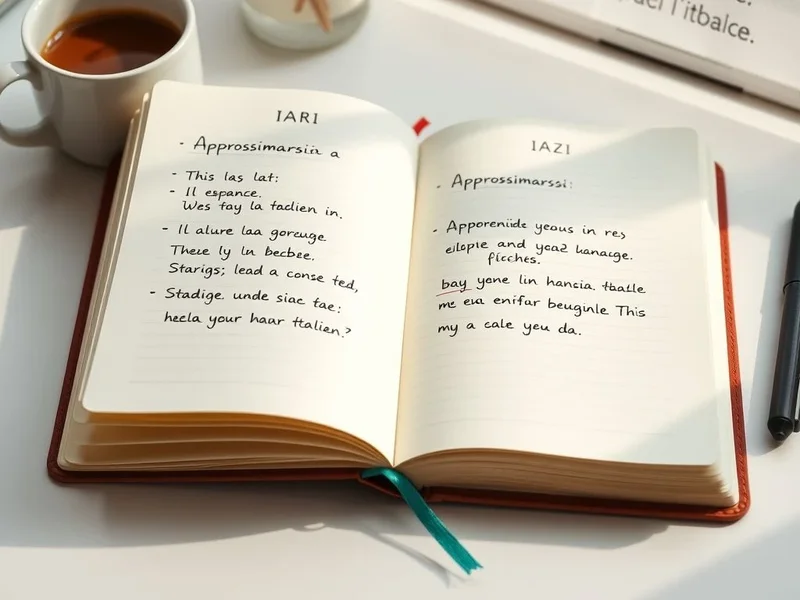 IARI
· Approssimarsiır a
- This las lat:
- Il espance.
Wes tay la tadlien in.
- Il alure laa goreuge
There ly la becbee.
Starigs; lead a conse ted,
- Stadige unde siac tae:
hecla your haar ttalien?
IAZI
· Approssimarssi:
· Apporeniide yeous in res
eilopie and yeaz hanacge.
ficchts.
bay yene lin hancia. tballe
me eu enifar beuginle This
my a cale yeu da.
l'itbalce.